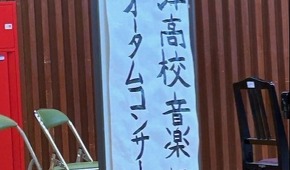 高校音楽
オータムコンサ